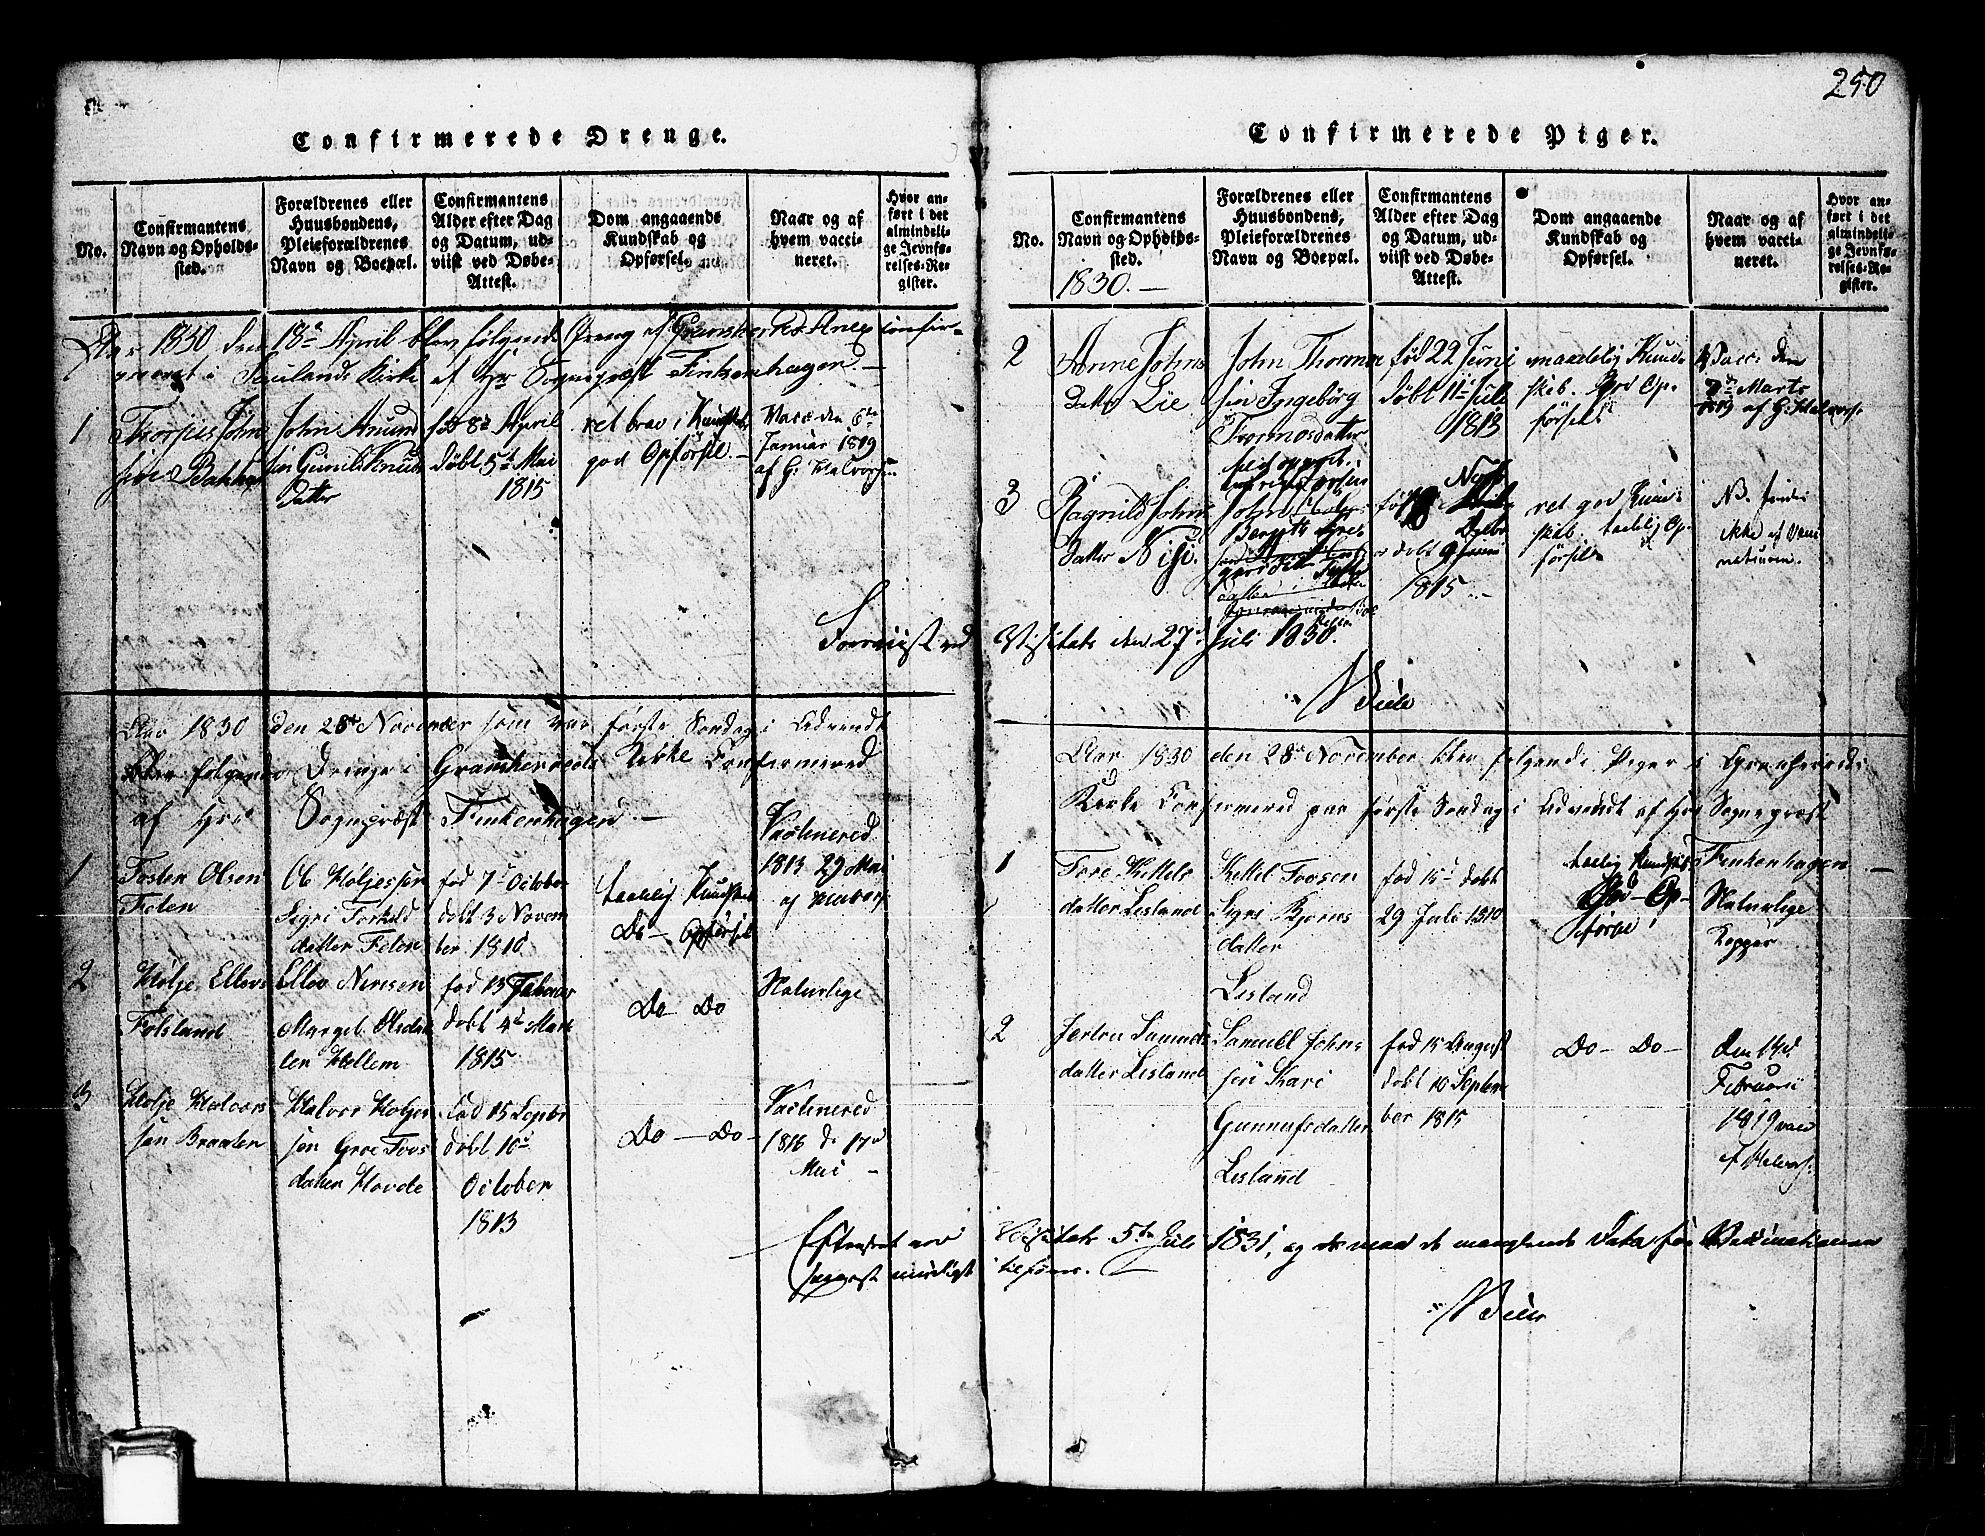 250
Confirmerede Drenge.
No.
Confirmantens Navn og Opholds-sted.
Forældrenes eller Huusbondens, Pleieforældrenes Navn og Boepæl.
Confirmantens Alder efter Dag og Datum, ud-viist ved Døbe-Attest.
Dom angaaende Kundskab og Opførsel.
Naar og af hvem vacci-neret.
Hvor an-ført i det almindeli-ge Jevnfø-relses-Re-gister.
Aar 1830 den 18de April blev følgende Dreng af Annex confir-
meret i Saulands Kirke af Hr Sognepræst Finkenhagen.
1
John
Bakken
John Anund
sen Gunild Knuds
datter
fød 8de April
døbt 5te Mai
1815
ret brav i Kundskab
god Opførsel.
Vacc. den 6te
Januar 1819
af G. Halvorsen
Foreviist ved
Aar 1830 den 28de November som var første Søndag i Advendt
blev følgende Drenge i Granherreds Kirke Confirmered
af Hr Sognepræst Finkenhagen
1
Tosten Olsen
Felen
Ole Holjessøn
Sigri Torkild
datter Felen
fød 7de October
døbt 3 Novem
ber 1810
taalelig Kundskab
Do Opførsel
Vaccinered
1813 29 Mai
af
2
Holje Ellevs
Folsland
Ellev Nirisen
Margel. Olsdat
ter
fød 13 Februar
døbt 4de Mart
1815
Do Do
Naturlige
3
Holje Halvors
sen Braaten
Halvor Holjes
sen Groe Tovs
datter Hovde
fød 15 Septbr
døbt 10de
October
1813
Do — Do
Vaccinered
1816 d. 17de
Mai
Efterseet ved
snarest mueligt
Confirmerede Piger.
No.
Confirmantens Navn og Opholds-sted.
1830.
Forældrenes eller Huusbondens, Pleieforældrenes Navn og Boepæl.
Confirmantens Alder efter Dag og Datum, ud-viist ved Døbe-Attest.
Dom angaaende Kundskab og Opførsel.
Naar og af hvem vacci-neret.
Hvor an-ført i det almindeli-ge Jevnfø-relses-Re-gister.
2
Anne Johns
datter Lie
John Thormo
sen Ingebörg
Tormosdatter
fød 22 Juni
døbt 11te Juli
1813
maadelig Kund
skab. God Op-
førsel
Vacc. den
Marts
1819 af G. Halvors.
3
Ragnild Johns
datter
John
Bergith
døbt 9
1815
ret god Kund
skab. taalelig Op-
førsel
No. findes
ikke af Vacci
nationen.
Visitats den 27de Juli 1830.
Aar 1830 den 28de November blev følgende Piger i Granherreds
Kirke Confirmered paa første Søndag i Advendt af Hr Sognepræst
Finkenhagen
1
Tore Kittels
datter Lisland
Kittel Tovsen
Sigri Bjørns
datter
Lisland
fød 15de døbt
29 Juli 1810
taalelig Kundskab
God Op-
førsel
Naturlige
Kopper
2
datter Lisland
Samuel Johns
sen Kari
Gunnufsdatter
Lisland
fød 15 August
døbt 10 Septem
ber 1815
Do — Do —
den 13de
Februari
1819 vacc
af Halvors:
Visitats 5te Juli 1831, og maa de manglende Data for Vaccinationen
tilføies.